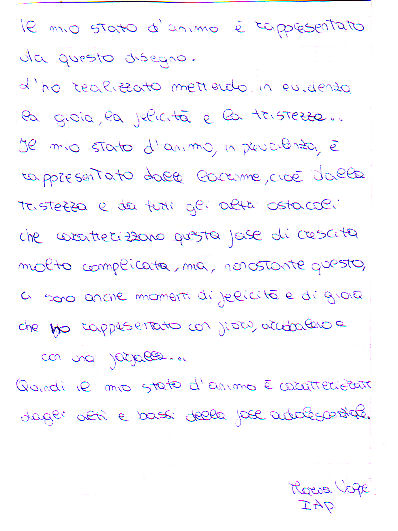 Il mio stato d'animo è rappresentato
da questo disegno.
L'ho realizzato mettendo in evidenza
la gioia, la felicità e la tristezza...
Il mio stato d'animo, in prevalenza, è
rappresentato dalle lacrime, cioè dalla
tristezza e da tutti gli altri ostacoli
che caratterizzano questa fase di crescita
molto complicata, ma, nonostante questo,
ci sono anche momenti di felicità e di gioia
che ho rappresentato con fiori, arcobaleno e
con una farfalla...
Quindi il mio stato d'animo è caratterizzato
dagli alti e bassi della fase adolescenziale.
I Ap